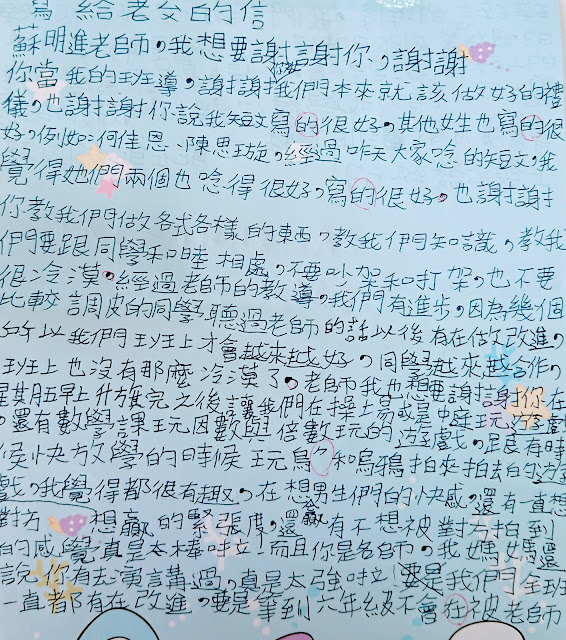 寫給老師的信
蘇明進老師,我想要謝謝你,謝謝
你當我的班導,謝謝我們本來就該做好的禮
儀,也謝謝你說我短文寫的很好,其他女生也寫的很
好,例如:何佳恩、陳思璇,經過昨天大家唸的短文,我
覺得她們兩個也唸得很好,寫的很好,也謝謝
你教我們做各式各樣的東西,教我們知識,教我
們要跟同學和睦相處,不要吵架和打架,也不要
很冷漠,經過老師的教導,我們有進步,因為幾個
比較調皮的同學聽過老師的話以後有在做改進,
所以我們班上才會越來越好,同學越來越合作,
班上也沒有那麼冷漠了,老師我也想要謝謝你在
星期五早上升旗完之後讓我們在操場或是中庭玩遊戲
,還有數學課玩因數與倍數玩的遊戲,跟有時
候快放學的時候玩鳥和烏鴉拍來拍去的遊
戲,我覺得都很有趣,在想男生們的快感,還有一直想
對方想贏的緊張度,還有不想被對方拍到
的感覺真是太棒啦!而且你是名師,我媽媽還
說你有去演講過,真是太強啦!要是我們全班
一直都有在改進,要是等到六年級不會在被老師